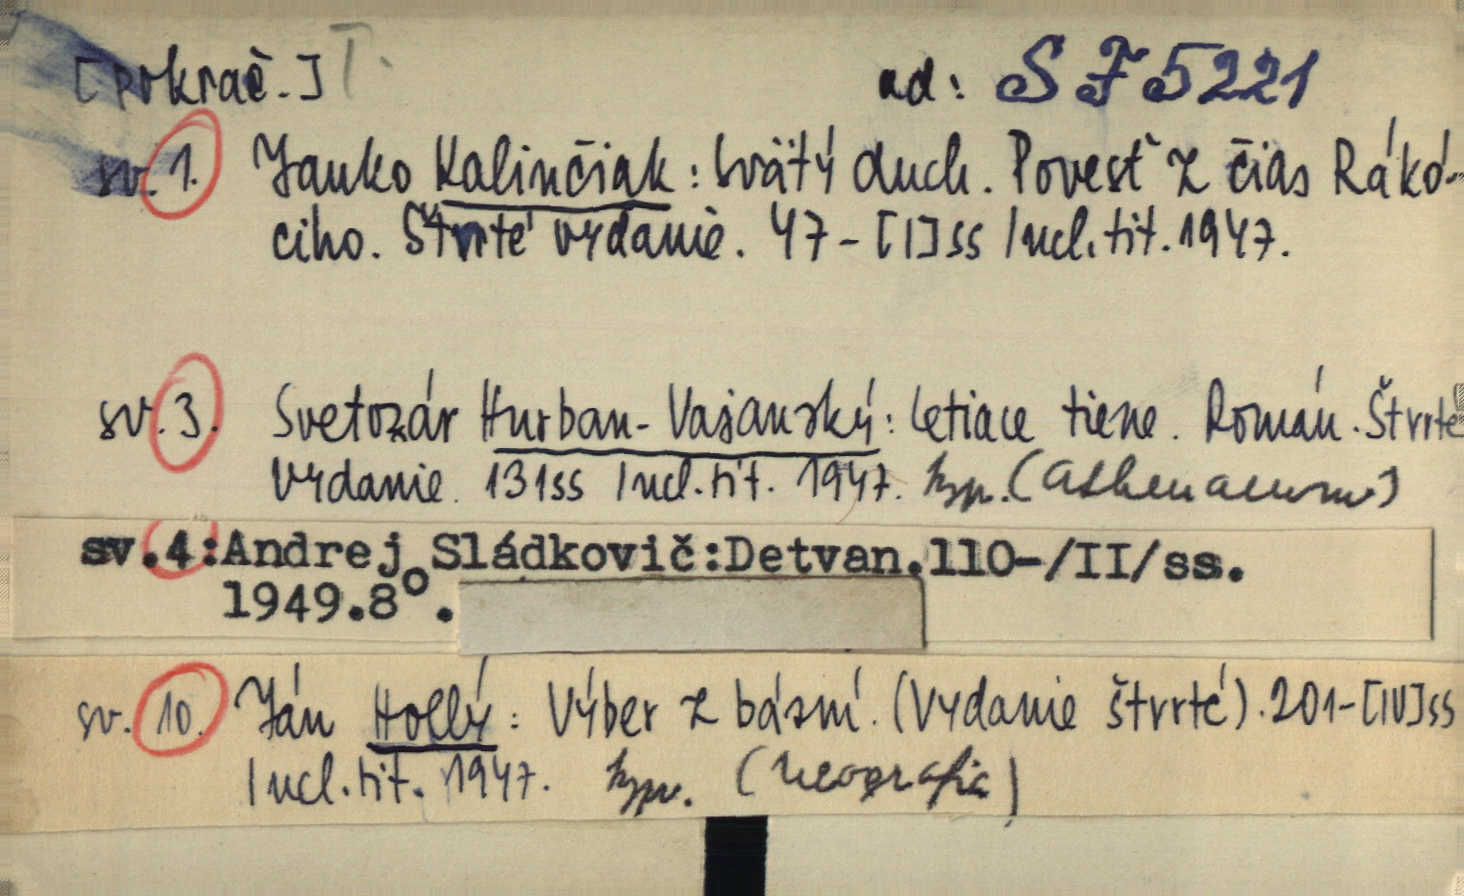 [pokrač.] T. ad: SF 5221
sv. 1. Janko Kalinčiak: Svätý duch. Povesť z čias Rákó-
ciho. Štvrté vydanie. 47-[I]ss Incl.tit. 1947.
sv. 3. Svetozár Hurban-Vajanský: Letiace tiene. Román. Štvrté
Vydanie. 131ss Incl.tit. 1947. typ. (Athenaeum)
sv.4:Andrej Sládkovič:Detvan.110-/II/ss.
1949.8°.
sv. 10. Ján Hollý: Výber z básní. (Vydanie štvrté). 201-[IV]ss
Incl.tit. 1947. typ. (Neografia)